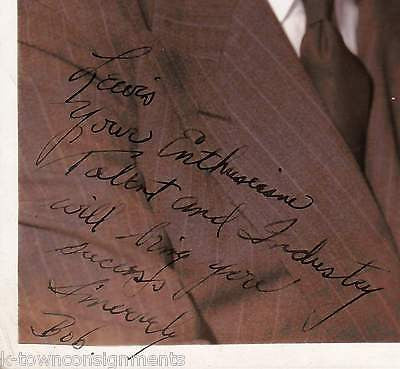 Lewis
Your Enthusiasm
Talent and Industry
will bring you
success
Sincerely
Bob.
k-townconsignments